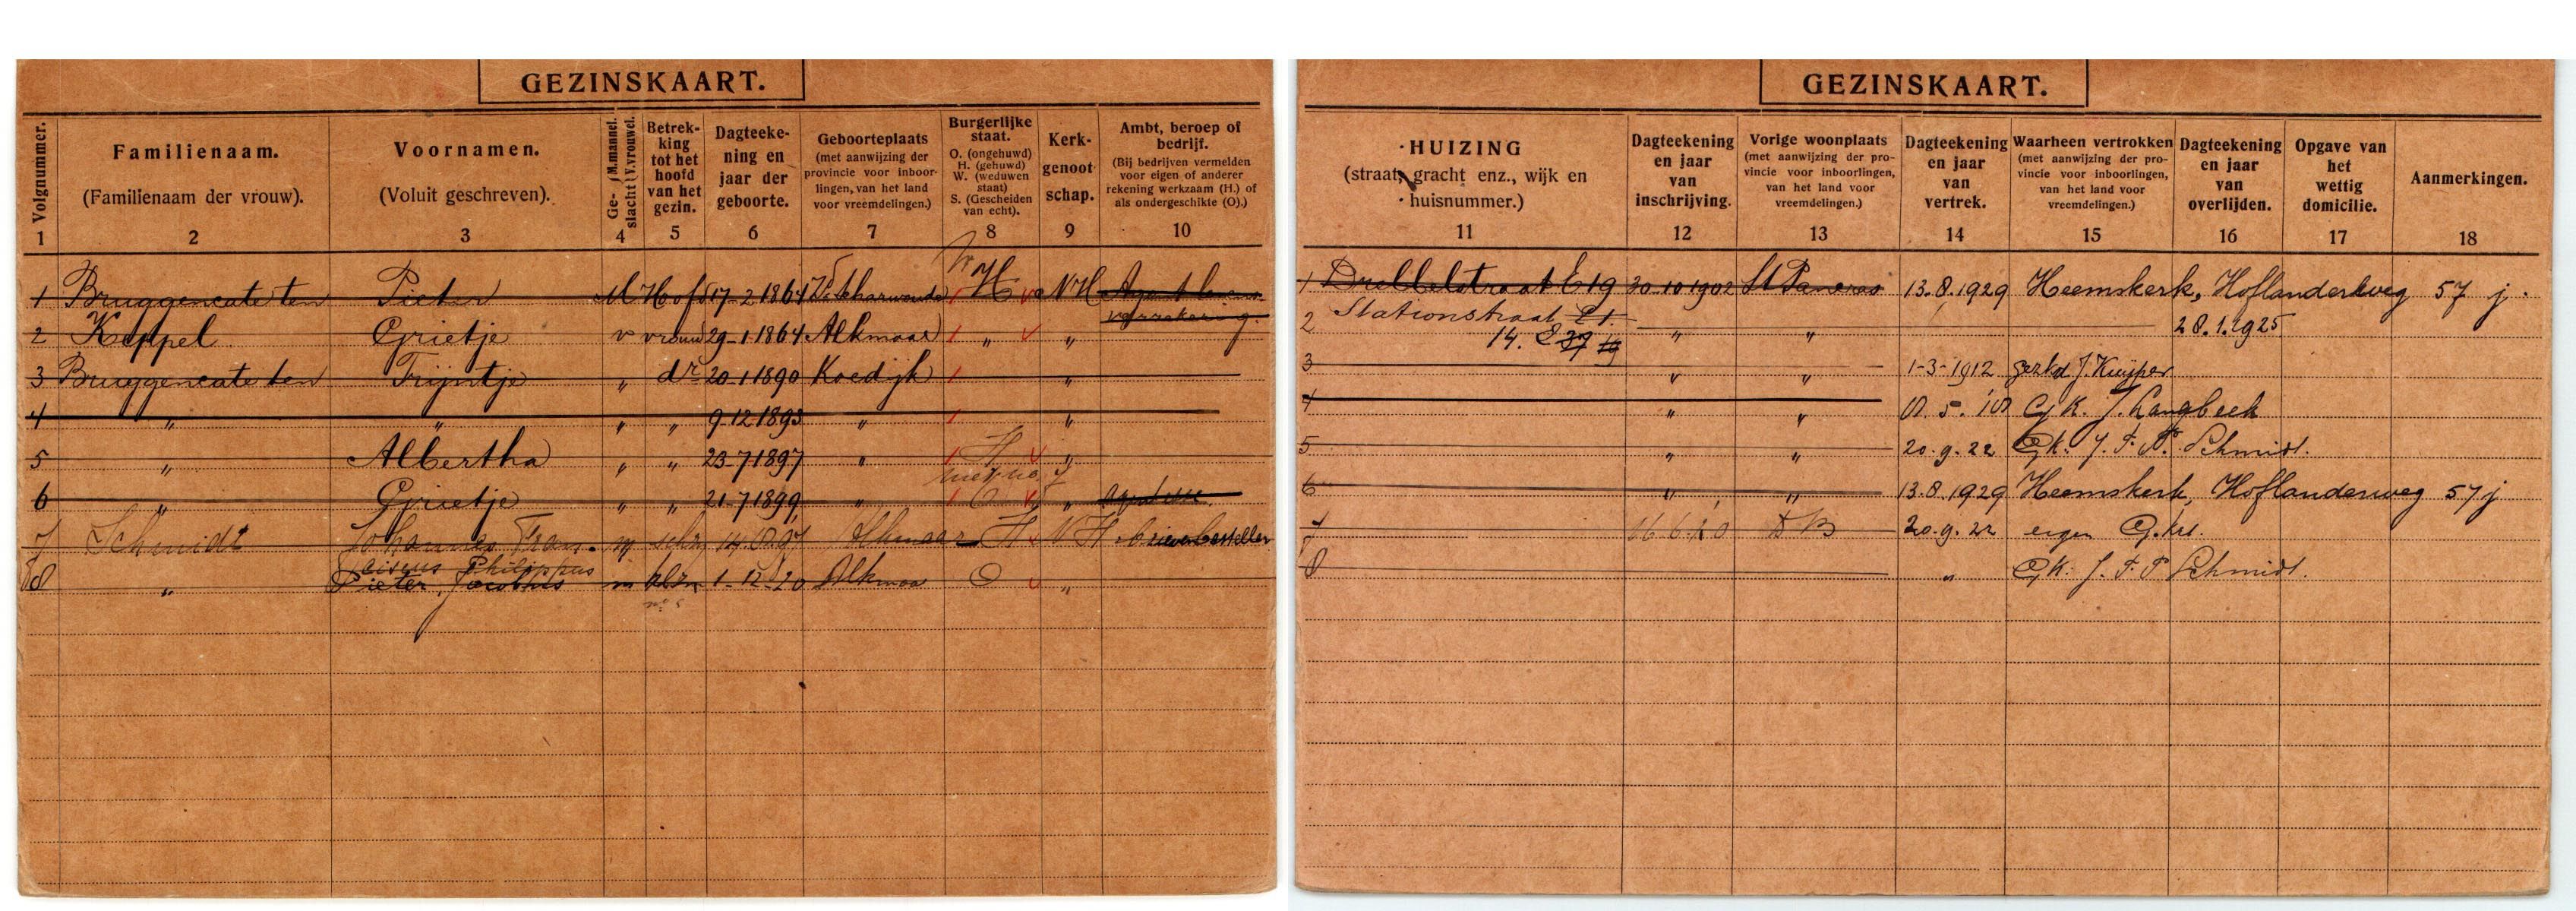 GEZINSKAART.
Volgnummer. 1
Familienaam. (Familienaam der vrouw). 2
Voornamen. (Voluit geschreven). 3
Ge- slacht M. mannel. V. vrouwel. 4
Betrek- king tot het hoofd van het gezin. 5
Dagteeke- ning en jaar der geboorte. 6
Geboorteplaats (met aanwijzing der provincie voor inboor- lingen, van het land voor vreemdelingen.) 7
Burgerlijke staat. O. (ongehuwd) H. (gehuwd) W. (weduwen staat) S. (Gescheiden van echt). 8
Kerk- genoot- schap. 9
Ambt, beroep of bedrijf. (Bij bedrijven vermelden voor eigen of anderer rekening werkzaam (H.) of als ondergeschikte (O).) 10
1 Bruggencate ten Pieter M Hoofd 17-2-1864 H NH Agent
2 Keppel Grietje v vrouw 29-1-1864 Alkmaar " "
3 Bruggencate ten Trijntje " dr 20-1-1890 Koedijk "
4 " " " " 9-12-1893 " "
5 " Albertha " " 23-7-1897 " H "
6 " Grietje " " 21-7-1899 " O "
7 Schmidt Johannes Fran- m Alkmaar H NH brievenbesteller
ciscus Philippus
8 " Pieter Jacobus m 1-12-20 Alkmaa O "
GEZINSKAART.
HUIZING (straat, gracht enz., wijk en huisnummer.) 11
Dagteekening en jaar van inschrijving. 12
Vorige woonplaats (met aanwijzing der pro- vincie voor inboorlingen, van het land voor vreemdelingen.) 13
Dagteekening en jaar van vertrek. 14
Waarheen vertrokken (met aanwijzing der pro- vincie voor inboorlingen, van het land voor vreemdelingen.) 15
Dagteekening en jaar van overlijden. 16
Opgave van het wettig domicilie. 17
Aanmerkingen. 18
1 Drebbelstraat E 19 30-10-1902 St Pancras 13.8.1929 Heemskerk, Hoflanderweg 57 j.
Stationstraat
2 14. " " 28.1.1925
3 " " 1-3-1912 gezkd J. Kuijper
4 " " G K. J. Langbeek
5 " " 20.9.22 Gk. J. F. P. Schmidt.
6 " " 13.8.1929 Heemskerk, Hoflanderweg 57 j
7 DB 20.9.22 eigen G.krt.
8 " GK. J. F. P Schmidt.